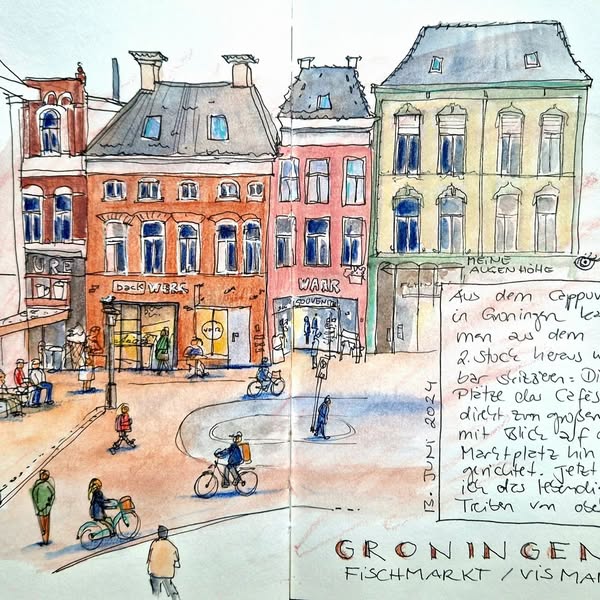 URE
back WERK
WAAR
SOUVENIRS
MEINE
AUGENHÖHE
Aus dem Cappuv
in Groningen ka
man aus dem
2. Stock heraus w
bar skizzieren: Di
Plätze des Cafés
direkt zum großen
mit Blick auf d
Marktplatz hin
gerichtet. Jetzt
ich das lebendi
Treiben von obe
13. JUNI 2024
GRONINGEN
FISCHMARKT / VISMAR